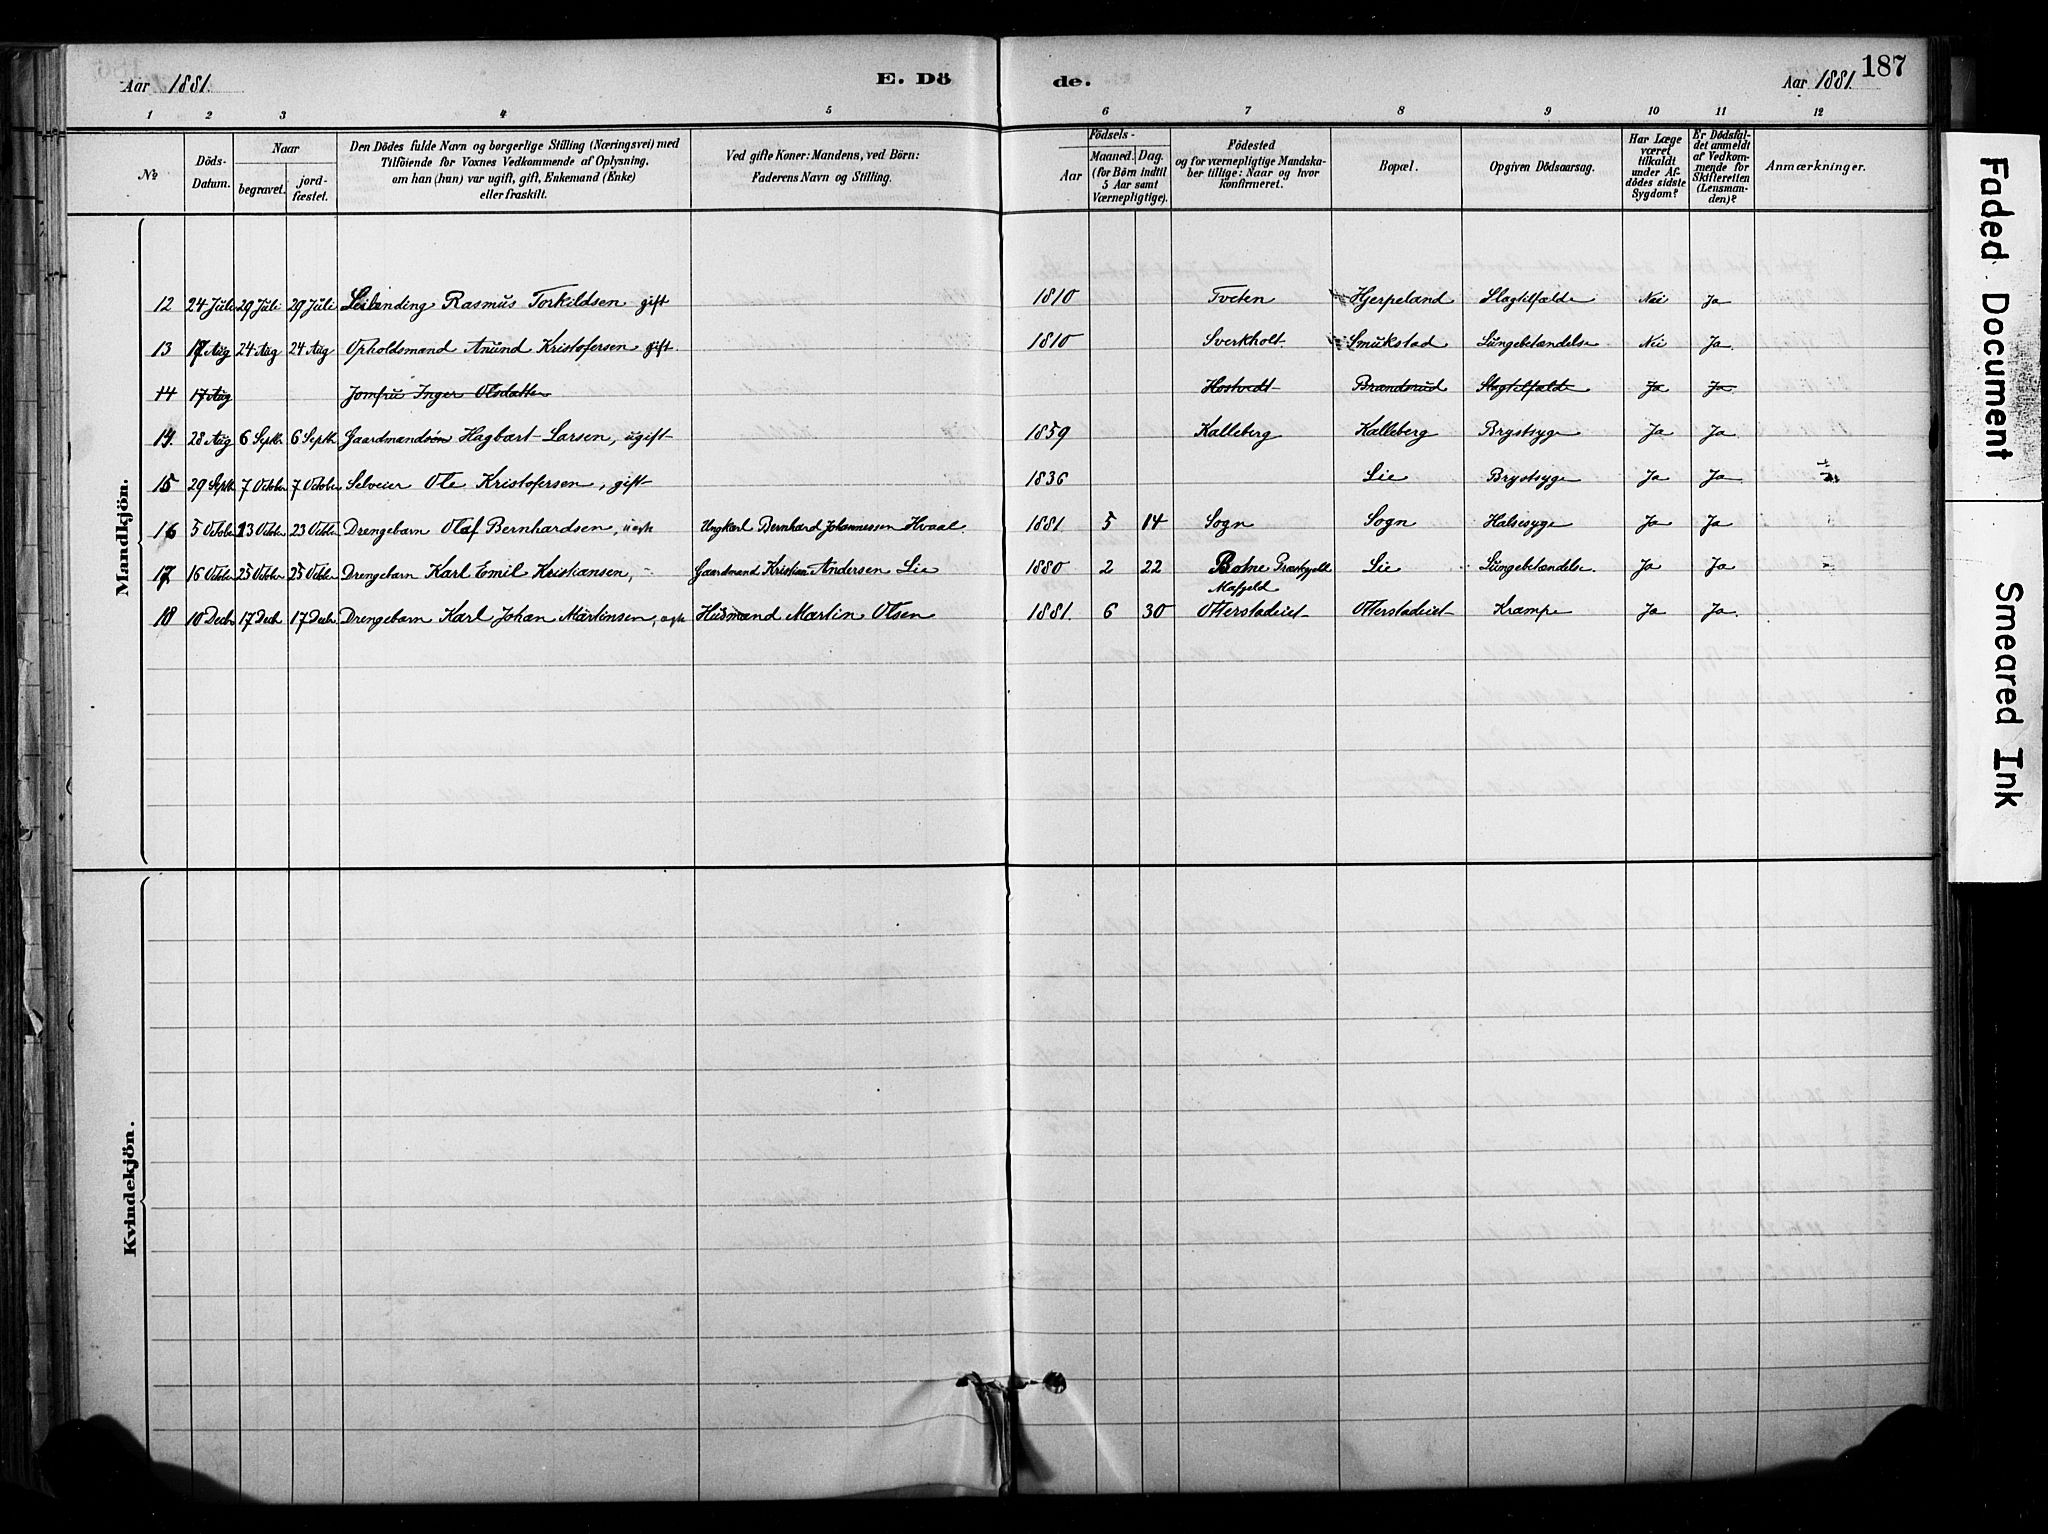 Aar 1881. E. Dö de. Aar 1881. 187
1 2 3 4 5 6 7 8 9 10 11 12
№ Döds-Datum. Naar begravet. jord-fæstet. Den Dödes fulde Navn og borgerlige Stilling (Næringsvei) med Tilföiende for Voxnes Vedkommende af Oplysning, om han (hun) var ugift, gift, Enkemand (Enke) eller fraskilt. Ved gifte Koner: Mandens, ved Børn: Faderens Navn og Stilling. Födsels- Aar Maaned. Dag. (for Børn indtil 5 Aar samt Værnepligtige). Födested og for værnepligtige Mandskaber tillige: Naar og hvor konfirmeret. Bopæl. Opgiven Dödsaarsag. Har Læge været tilkaldt under Afdödes sidste Sygdom? Er Dödsfaldet anmeldt af Vedkommende for Skifteretten (Lensmanden)? Anmærkninger.
Mandkjön.
12 24 Juli 29 Juli 29 Juli Leilending Rasmus Torkildsen gift 1810 Tveten Hjerpeland Slagtilfælde Nei Ja
13 17 Aug 24 Aug 24 Aug Opholdsmand Anund Kristofersen gift. 1810 Sverkholt Smukstad Lungebetændelse Nei Ja.
14 17 Aug Jomfru Inger Olsdatter Hostvedt Brandsrud Slagtilfælde Ja Ja
14. 28 Aug 6 Septbr 6 Septbr Gaardmandsøn Hagbart Larsen, ugift 1859 Kalleberg Kalleberg Brystsyge Ja Ja
15 29 Septbr 7 October 7 October Selveier Ole Kristofersen, gift 1836 Lie Brystsyge Ja Ja
16 5 October 23 October 23 October Drengebarn Olaf Bernhardsen, uægte Ungkarl Bernhard Johannessen Hvaal. 1881. 5 14 Sogn Sogn Halsesyge Ja Ja
17 16 October 25 October 25 October Drengebarn Karl Emil Kristiansen, Gaardmand Kristian Andersen Lie 1880 2 22 Botne Præstegjeld Lie Lungebetændelse. Ja Ja
18 10 Decbr 17 Decbr 17 Decbr Drengebarn Karl Johan Martinsen, ægte Husmand Martin Olsen 1881. 6 30 Otterstadeiet Otterstadeiet Krampe Ja Ja.
Kvindekjön.
Faded Document
Smeared Ink